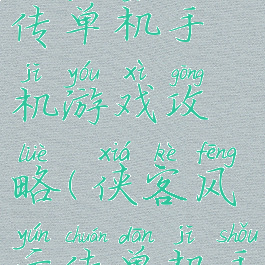 传单机手
jī yóu xì gōng
机游戏攻
lüè xiá kè fēng
略(侠客风
yún chuán dān jī shǒu
云传单机手